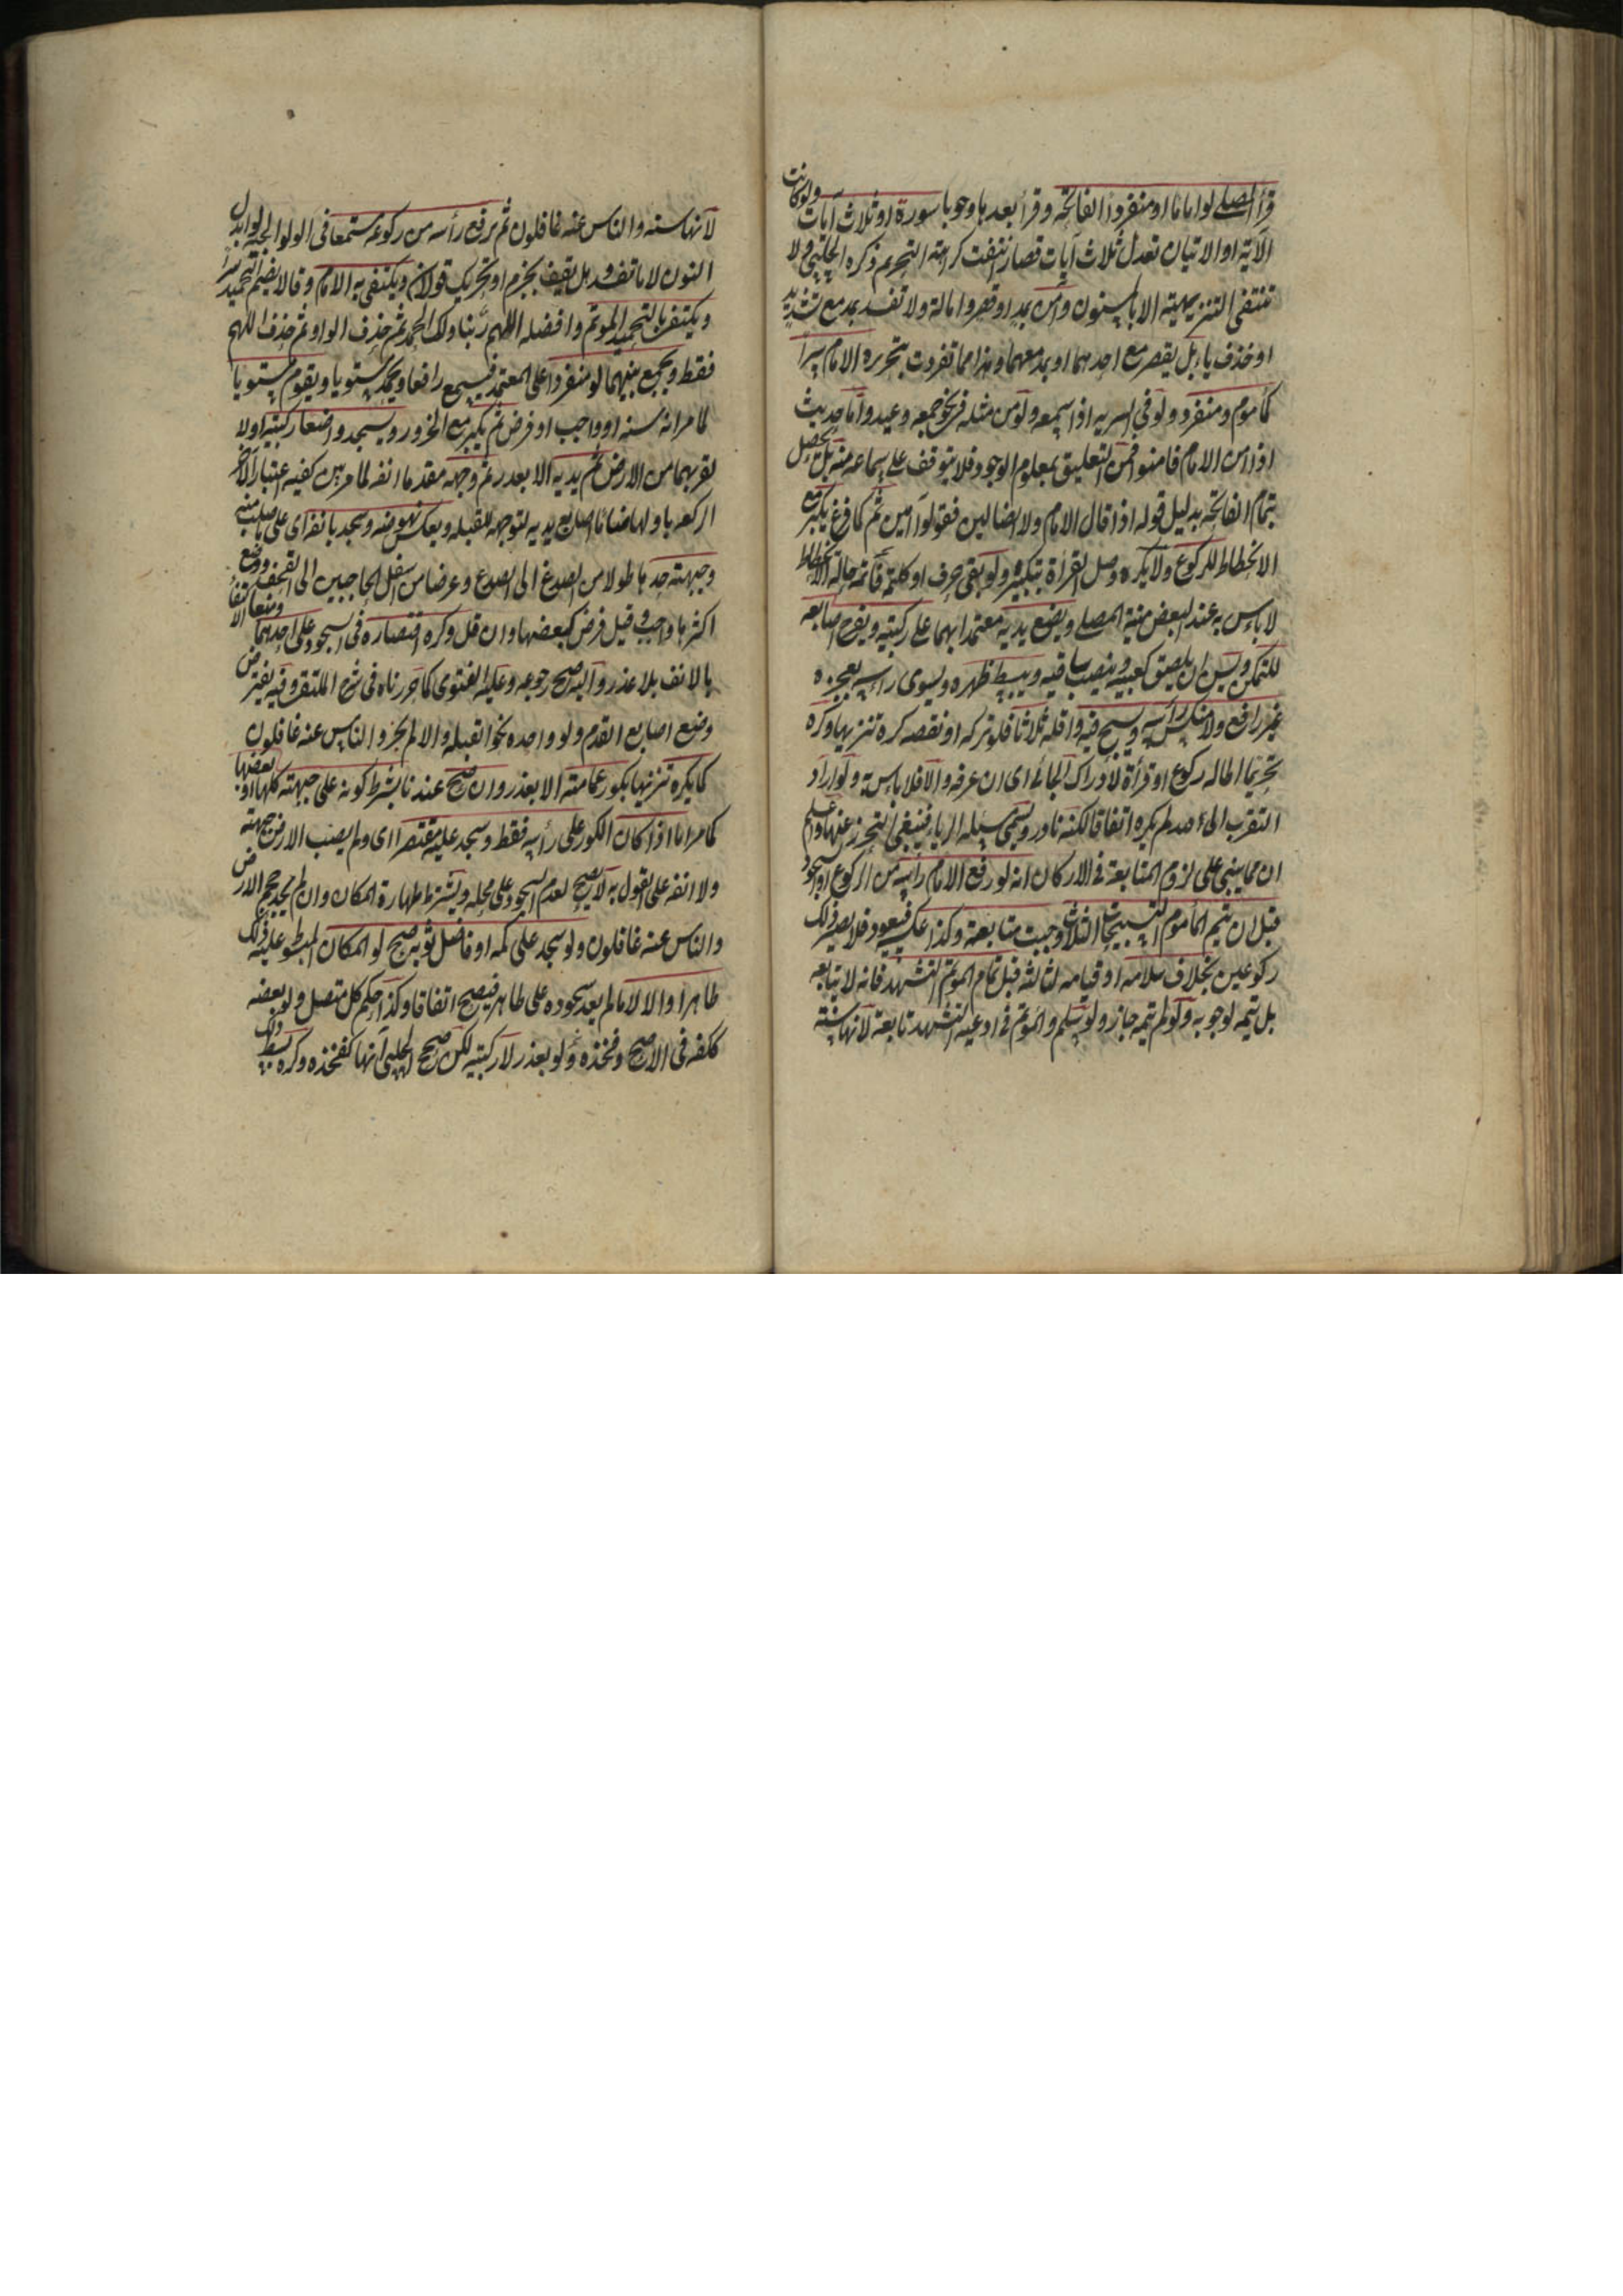 قرأ المصلي لو اماما او منفردا الفاتحة وقرأ بعدها وجوبا سورة او ثلاث آيات ولو كانت
الآية او الايتان تعدل ثلاث آيات قصار انتفت كراهة التحريم ذكره الحلبي ولا
تنتفي التنزيهية الا بالمسنون وأمن بمد او قصر وامالة ولا تفسد بمد مع تشديد
او حذف ياء بل يقصر مع احدهما او بمد معهما وهذا مما تفردت بتحريره الامام سرا
كمأموم ومنفرد ولو في السرية اذا سمعه ولو من مثله في نحو جمعه وعيد وأما حديث
اذا امن الامام فامنوا فمن التعليق بمعلوم الوجود فلا يتوقف على سماعه منه بل يحصل
بتمام الفاتحة بدليل قوله اذا قال الامام ولا الضالين فقولوا آمين ثم كما فرغ يكبر مع
الانحطاط للركوع ولا يكره وصل القرأة بتكبيره ولو بقي حرف او كلمة فأتمه حالة الانحطاط
لا بأس به عند البعض منية المصلي ويضع يديه معتمدا بهما على ركبتيه ويفرج اصابعه
للتمكن ويسن ان يلصق كعبيه وينصب ساقيه ويبسط ظهره ويسوي رأسه بعجزه
غير رافع ولا منكس رأسه ويسبح فيه واقله ثلاثا فلو تركه او نقصه كره تنزيها وكره
تحريما اطالة ركوع او قرأة لادراك الجائي اي ان عرفه والا فلا بأس به ولو اراد
التقرب الى الله لم يكره اتفاقا لكنه نادر وتسمى مسئلة الرياء فينبغي التحرز عنها واعلم
ان مما يبنى على لزوم المتابعة في الاركان انه لو رفع الامام رأسه من الركوع او السجود
قبل ان يتم المأموم التسبيحات الثلاث وجبت متابعته وكذا عكسه فيعود فلا يصير ذلك
ركوعين بخلاف سلامه او قيامه لثالثة قبل تمام المؤتم التشهد فانه لا يتابعه
بل يتمه لوجوبه ولو لم يتمه جاز ولو سلم والمؤتم في ادعية التشهد تابعه لانها سنة
لانها سنه والناس عنه غافلون ثم يرفع رأسه من ركوعه مستمعا في الولوالجية لو ابدل
النون لاما تفسد وهل يقف بجزم او تحريك قولان ويكتفي به الامام وقالا يضم التحميد سرا
ويكتفي بالتحميد المؤتم وافضله اللهم ربنا ولك الحمد ثم حذف الواو ثم حذف اللهم
فقط ويجمع بينهما لو منفردا على المعتمد فيسمع رافعا ويحمد مستويا ويقوم مستويا
لما مر انه سنه او واجب او فرض ثم يكبر مع الخرور ويسجد واضعا ركبتيه اولا
لقربهما من الارض ثم يديه الا بعذر ثم وجهه مقدما انفه لما مر بين كفيه اعتبارا لآخر
الركعه باولها ضاما اصابع يديه لتتوجه للقبله ويعكس نهوضه وسجد بانفه اي على ما صلب منه
وجبهته حدها طولا من الصدغ الى الصدغ وعرضا من اسفل الحاجبين الى القحف ووضع
اكثرها واجب وقيل فرض كبعضها وان قل وكره اقتصاره في السجود على احدهما ومنعا الاكتفاء
بالانف بلا عذر واليه صح رجوعه وعليه الفتوى كما حررناه في شرح الملتقى وفيه يفترض
وضع اصابع القدم ولو واحده نحو القبله والا لم تجز والناس عنه غافلون
كما يكره تنزيها بكور عمامته الا بعذر وان صح عندنا بشرط كونه على جبهته كلها او بعضها
كما مر اما اذا كان الكور على رأسه فقط وسجد عليه مقتصرا اي ولم يصب الارض جبهته
ولا انفه على القول به لا يصح لعدم السجود على محله ويشترط طهارة المكان وان لم يجد حجم الارض
والناس عنه غافلون ولو سجد على كمه او فاضل ثوبه صح لو المكان المبسوط عليه ذلك
طاهرا والا لا ما لم يعد سجوده على طاهر فيصح اتفاقا وكذا حكم كل متصل ولو بعضه
ككفه في الاصح وفخذه ولو بعذر لا ركبتيه لكن صحح الحلبي انها كفخذه وكره بسط ذلك